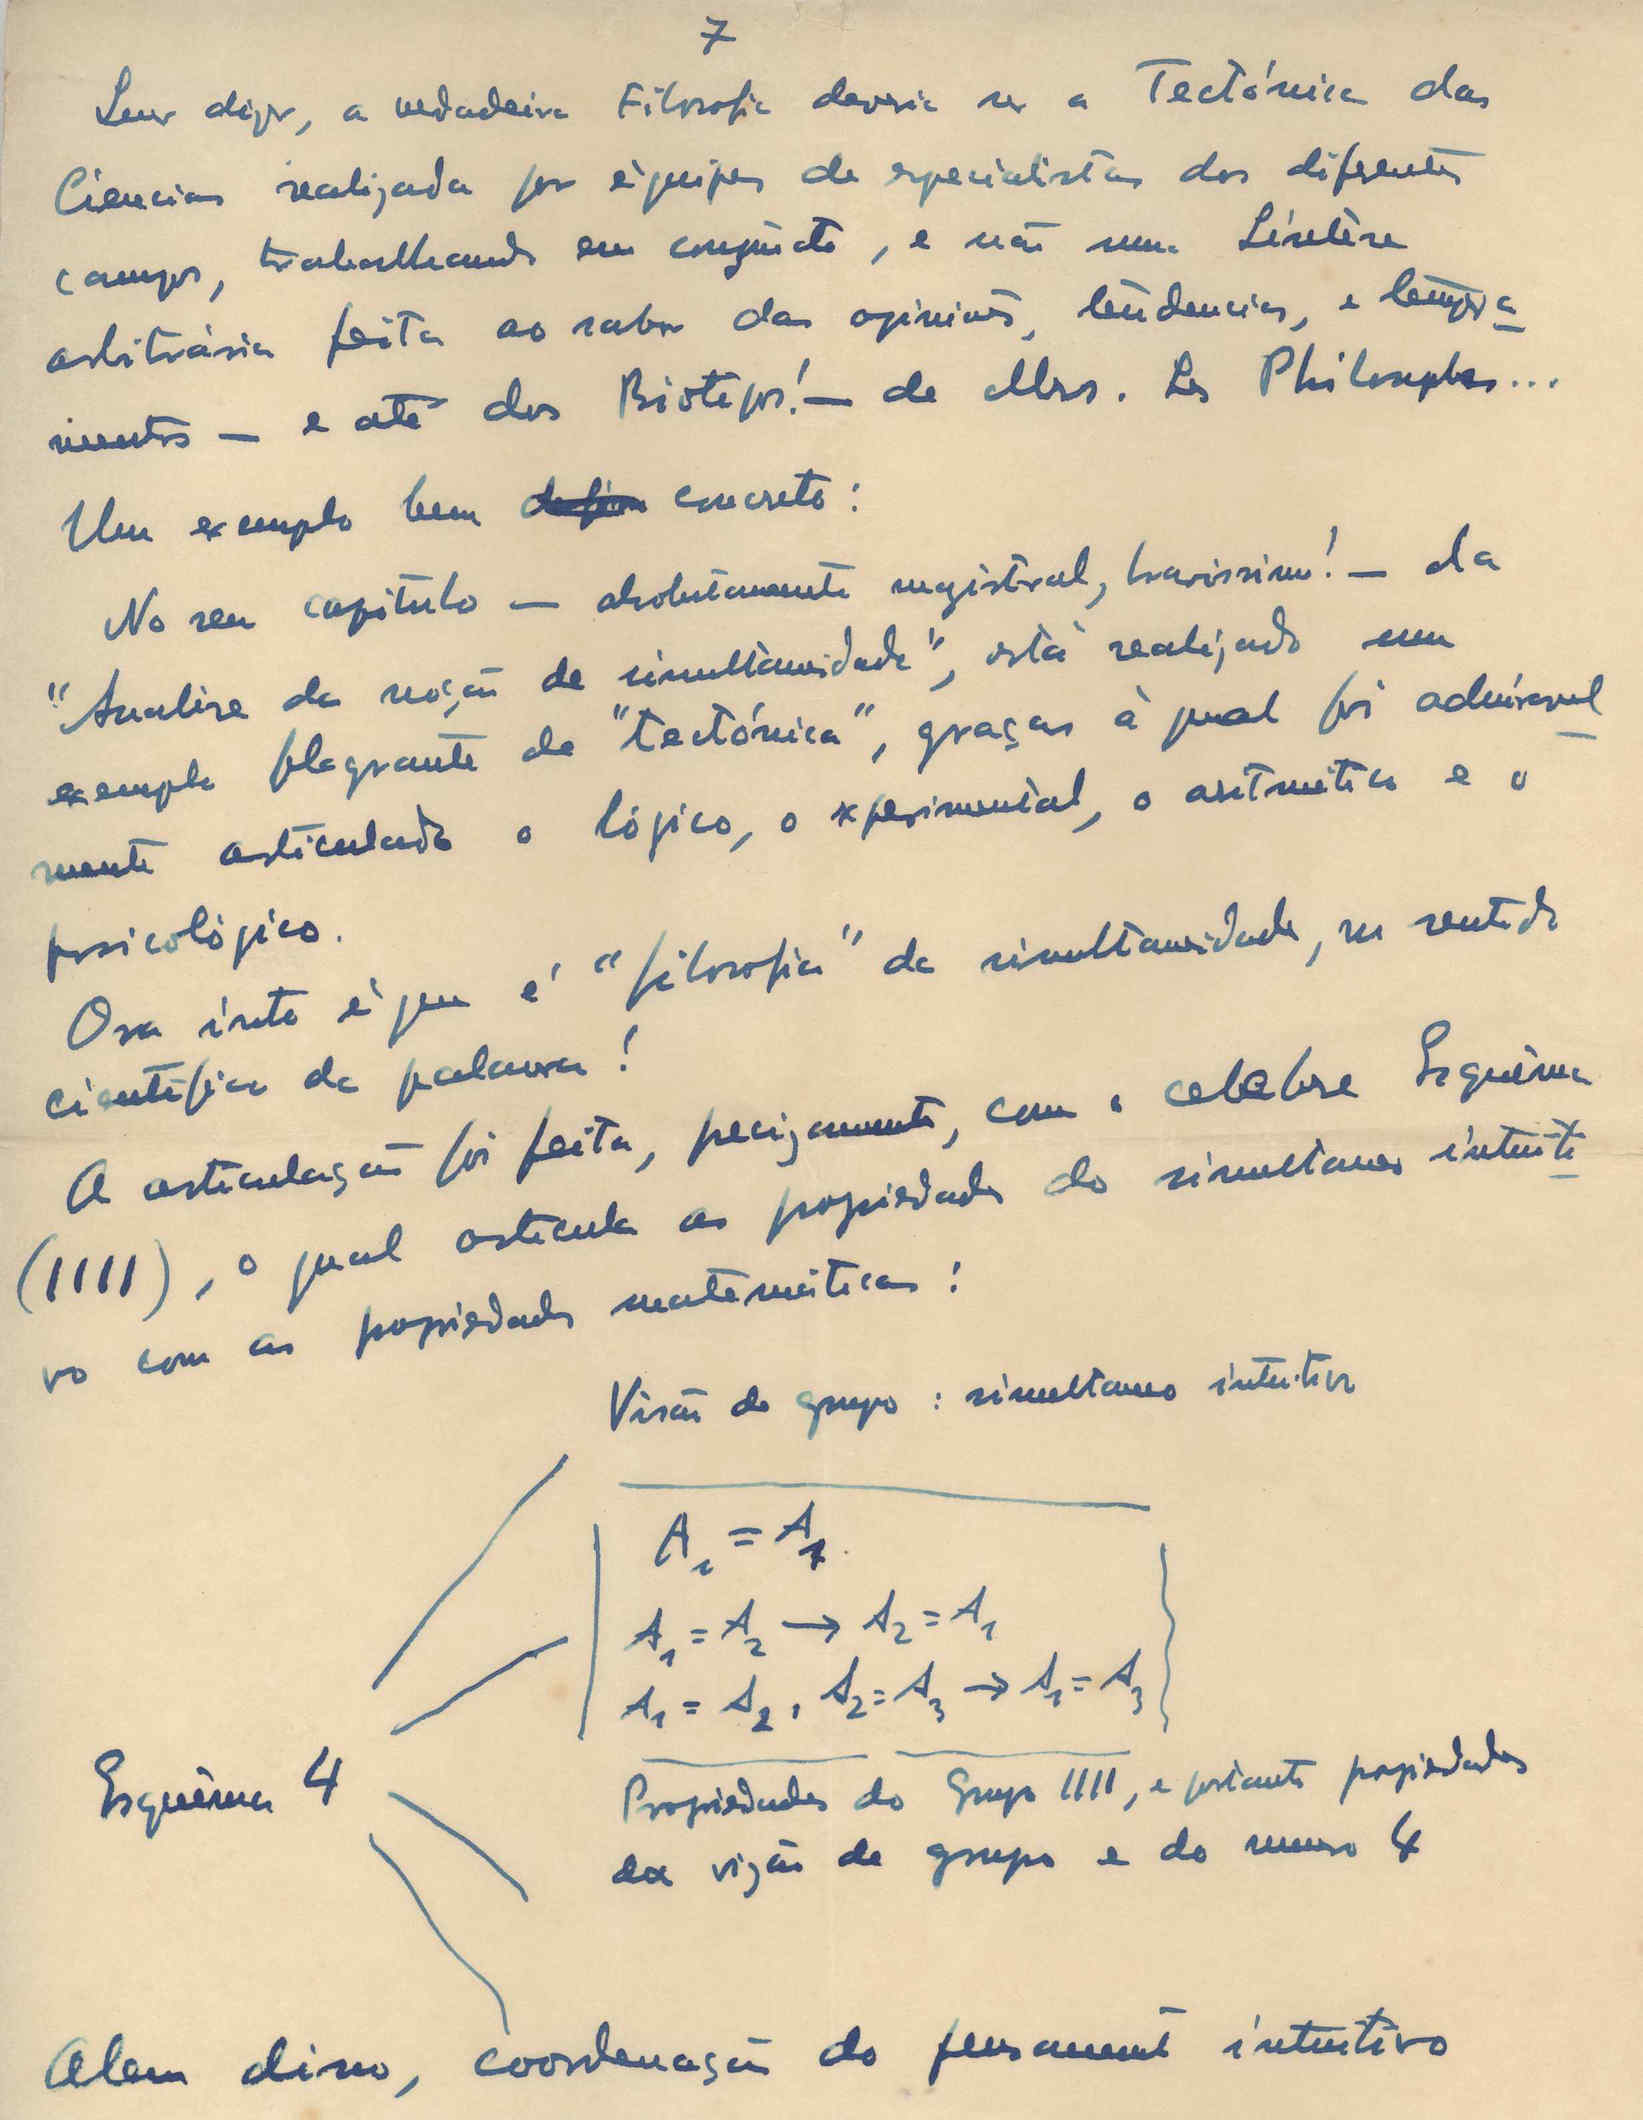 7
Quer dizer, a verdadeira Filosofia deveria ser a Tectónica das
Ciencias realizada por équipes de especialistas dos diferentes
campos, trabalhando em conjuncto, e não uma Síntese
arbitrária feita ao sabor das opiniões, tendencias, e tempera
mentos — e até dos Biotipos! — de Mrs. Les Philosophes...
Um exemplo bem concreto:
No seu capitulo — absolutamente magistral, bravissimo! — da
"Analise da noção de simultaneidade", está realizado um
exemplo flagrante de "tectónica", graças à qual foi admiravel
mente articulado o lógico, o experimental, o aritmético e o
psicológico.
Ora isto é que é "filosofia" da simultaneidade, no sentido
cientifico da palavra!
A articulação foi feita, precizamente, com o celebre Esquêma
(IIII), o qual articula as propiedades do simultaneo intuiti
vo com as propiedades matemáticas:
Visão de grupo: simultaneo intuitivo
A₁ = A₁
A₁ = A₂ → A₂ = A₁
A₁ = A₂, A₂ = A₃ → A₁ = A₃
Esquêma 4
Propriedades do Grupo IIII, e portanto propiedades
da vizão de grupo e do numero 4
Alem disso, coordenação do pensamento intuitivo